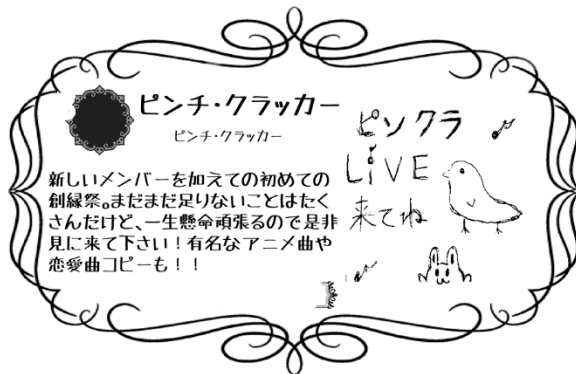 ピンチ・クラッカー
ピンチ・クラッカー
新しいメンバーを加えての初めての
創縁祭。まだまだ足りないことはたく
さんだけど、一生懸命頑張るので是非
見に来て下さい！有名なアニメ曲や
恋愛曲コピーも！！
ピンクラ
LiVE
来てね